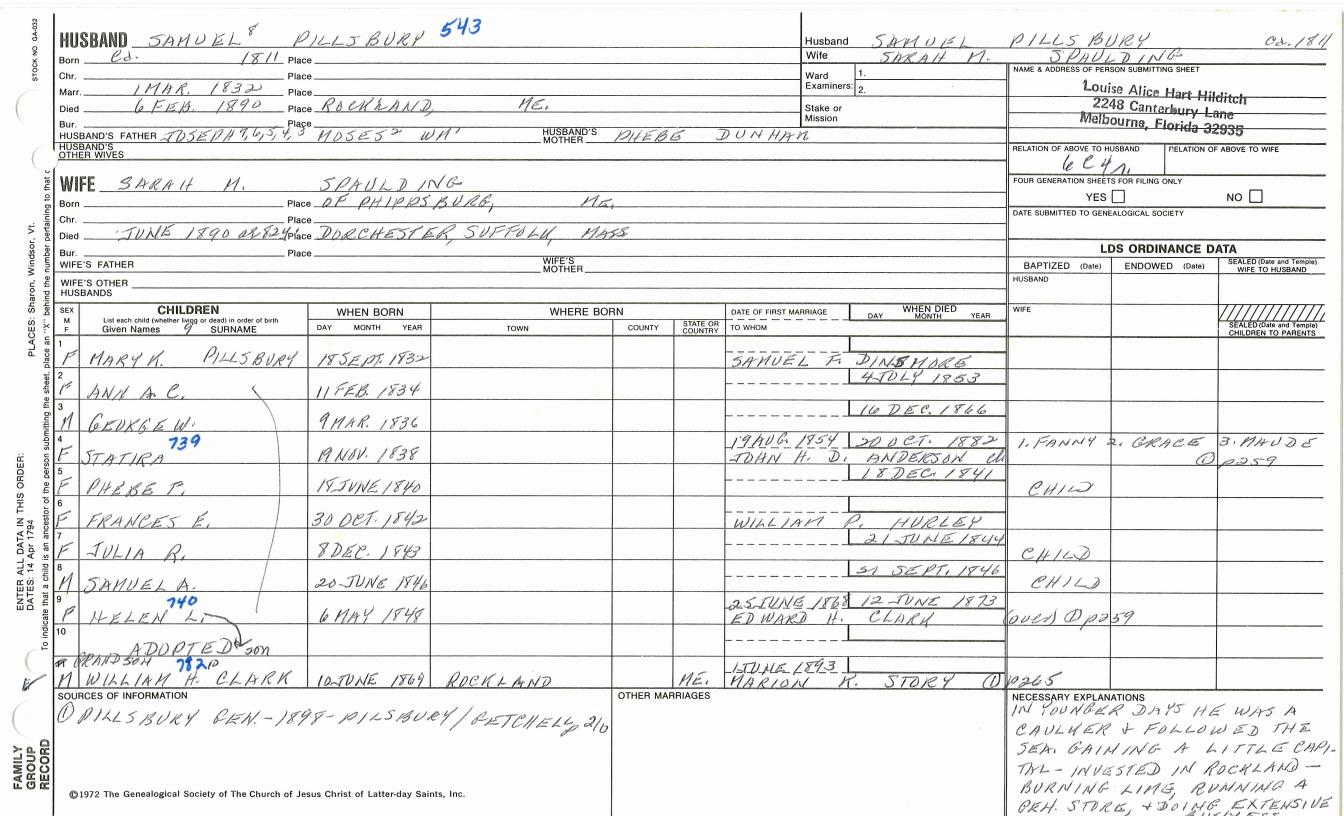 STOCK NO. GA-032
HUSBAND SAMUEL⁸ PILLSBURY 543
Born Cd. 1811 Place
Chr. Place
Marr. 1 MAR. 1832 Place
Died 6 FEB. 1890 Place ROCKLAND, ME.
Bur. Place
HUSBAND'S FATHER JOSEPH 7, 6, 5, 4, 3 MOSES² WM¹ HUSBAND'S MOTHER PHEBE DUNHAM
HUSBAND'S OTHER WIVES
WIFE SARAH M. SPAULDING
Born Place OF PHIPPSBURG, ME.
Chr. Place
Died JUNE 1890 Place DORCHESTER, SUFFOLK, MASS
Bur. Place
WIFE'S FATHER WIFE'S MOTHER
WIFE'S OTHER HUSBANDS
Husband SAMUEL PILLSBURY Cd. 1811
Wife SARAH M. SPAULDING
Ward Examiners: 1. 2.
Stake or Mission
NAME & ADDRESS OF PERSON SUBMITTING SHEET
Louise Alice Hart Hilditch
2248 Canterbury Lane
Melbourne, Florida 32935
RELATION OF ABOVE TO HUSBAND RELATION OF ABOVE TO WIFE
6C4r.
FOUR GENERATION SHEETS FOR FILING ONLY
YES NO
DATE SUBMITTED TO GENEALOGICAL SOCIETY
LDS ORDINANCE DATA
BAPTIZED (Date) ENDOWED (Date) SEALED (Date and Temple) WIFE TO HUSBAND
HUSBAND
WIFE
SEALED (Date and Temple) CHILDREN TO PARENTS
SEX M F CHILDREN WHEN BORN WHERE BORN DATE OF FIRST MARRIAGE WHEN DIED
List each child (whether living or dead) in order of birth
Given Names 9 SURNAME DAY MONTH YEAR TOWN COUNTY STATE OR COUNTRY TO WHOM DAY MONTH YEAR
1 F MARY K. PILLSBURY 18 SEPT. 1832 SAMUEL F. DINSMORE
2 F ANN A. C. 11 FEB. 1834 4 JULY 1853
3 M GEORGE W. 9 MAR. 1836 16 DEC. 1866
4 739 19 AUG. 1854 20 OCT. 1882 1. FANNY 2. GRACE 3. MAUDE
F STATIRA 19 NOV. 1838 JOHN H. D. ANDERSON ① p259
5 F PHEBE P. 18 JUNE 1840 18 DEC. 1841 CHILD
6 F FRANCES E. 30 OCT. 1842 WILLIAM P. HURLEY
7 F JULIA R. 8 DEC. 1843 21 JUNE 1844 CHILD
8 M SAMUEL A. 20 JUNE 1846 SEPT. 1846 CHILD
9 740 25 JUNE 1868 12 JUNE 1873
F HELEN L. 6 MAY 1848 EDWARD H. CLARK (OVER) ① p259
10 ADOPTED son
GRANDSON 782 1 JUNE 1893
M WILLIAM H. CLARK 10 JUNE 1869 ROCKLAND ME. MARION K. STORY ① p265
SOURCES OF INFORMATION
① PILLSBURY GEN.-1898-PILSBURY/GETCHELL p210
OTHER MARRIAGES
NECESSARY EXPLANATIONS
IN YOUNGER DAYS HE WAS A
CAULKER & FOLLOWED THE
SEA. GAINING A LITTLE CAPI-
TAL - INVESTED IN ROCKLAND -
BURNING LIME, RUNNING A
GEN. STORE, & DOING EXTENSIVE
©1972 The Genealogical Society of The Church of Jesus Christ of Latter-day Saints, Inc.
PLACES: Sharon, Windsor, Vt.
ENTER ALL DATA IN THIS ORDER:
DATES: 14 Apr 1794
To indicate that a child is an ancestor of the person submitting the sheet, place an "X" behind the number pertaining to that c
FAMILY
GROUP
RECORD